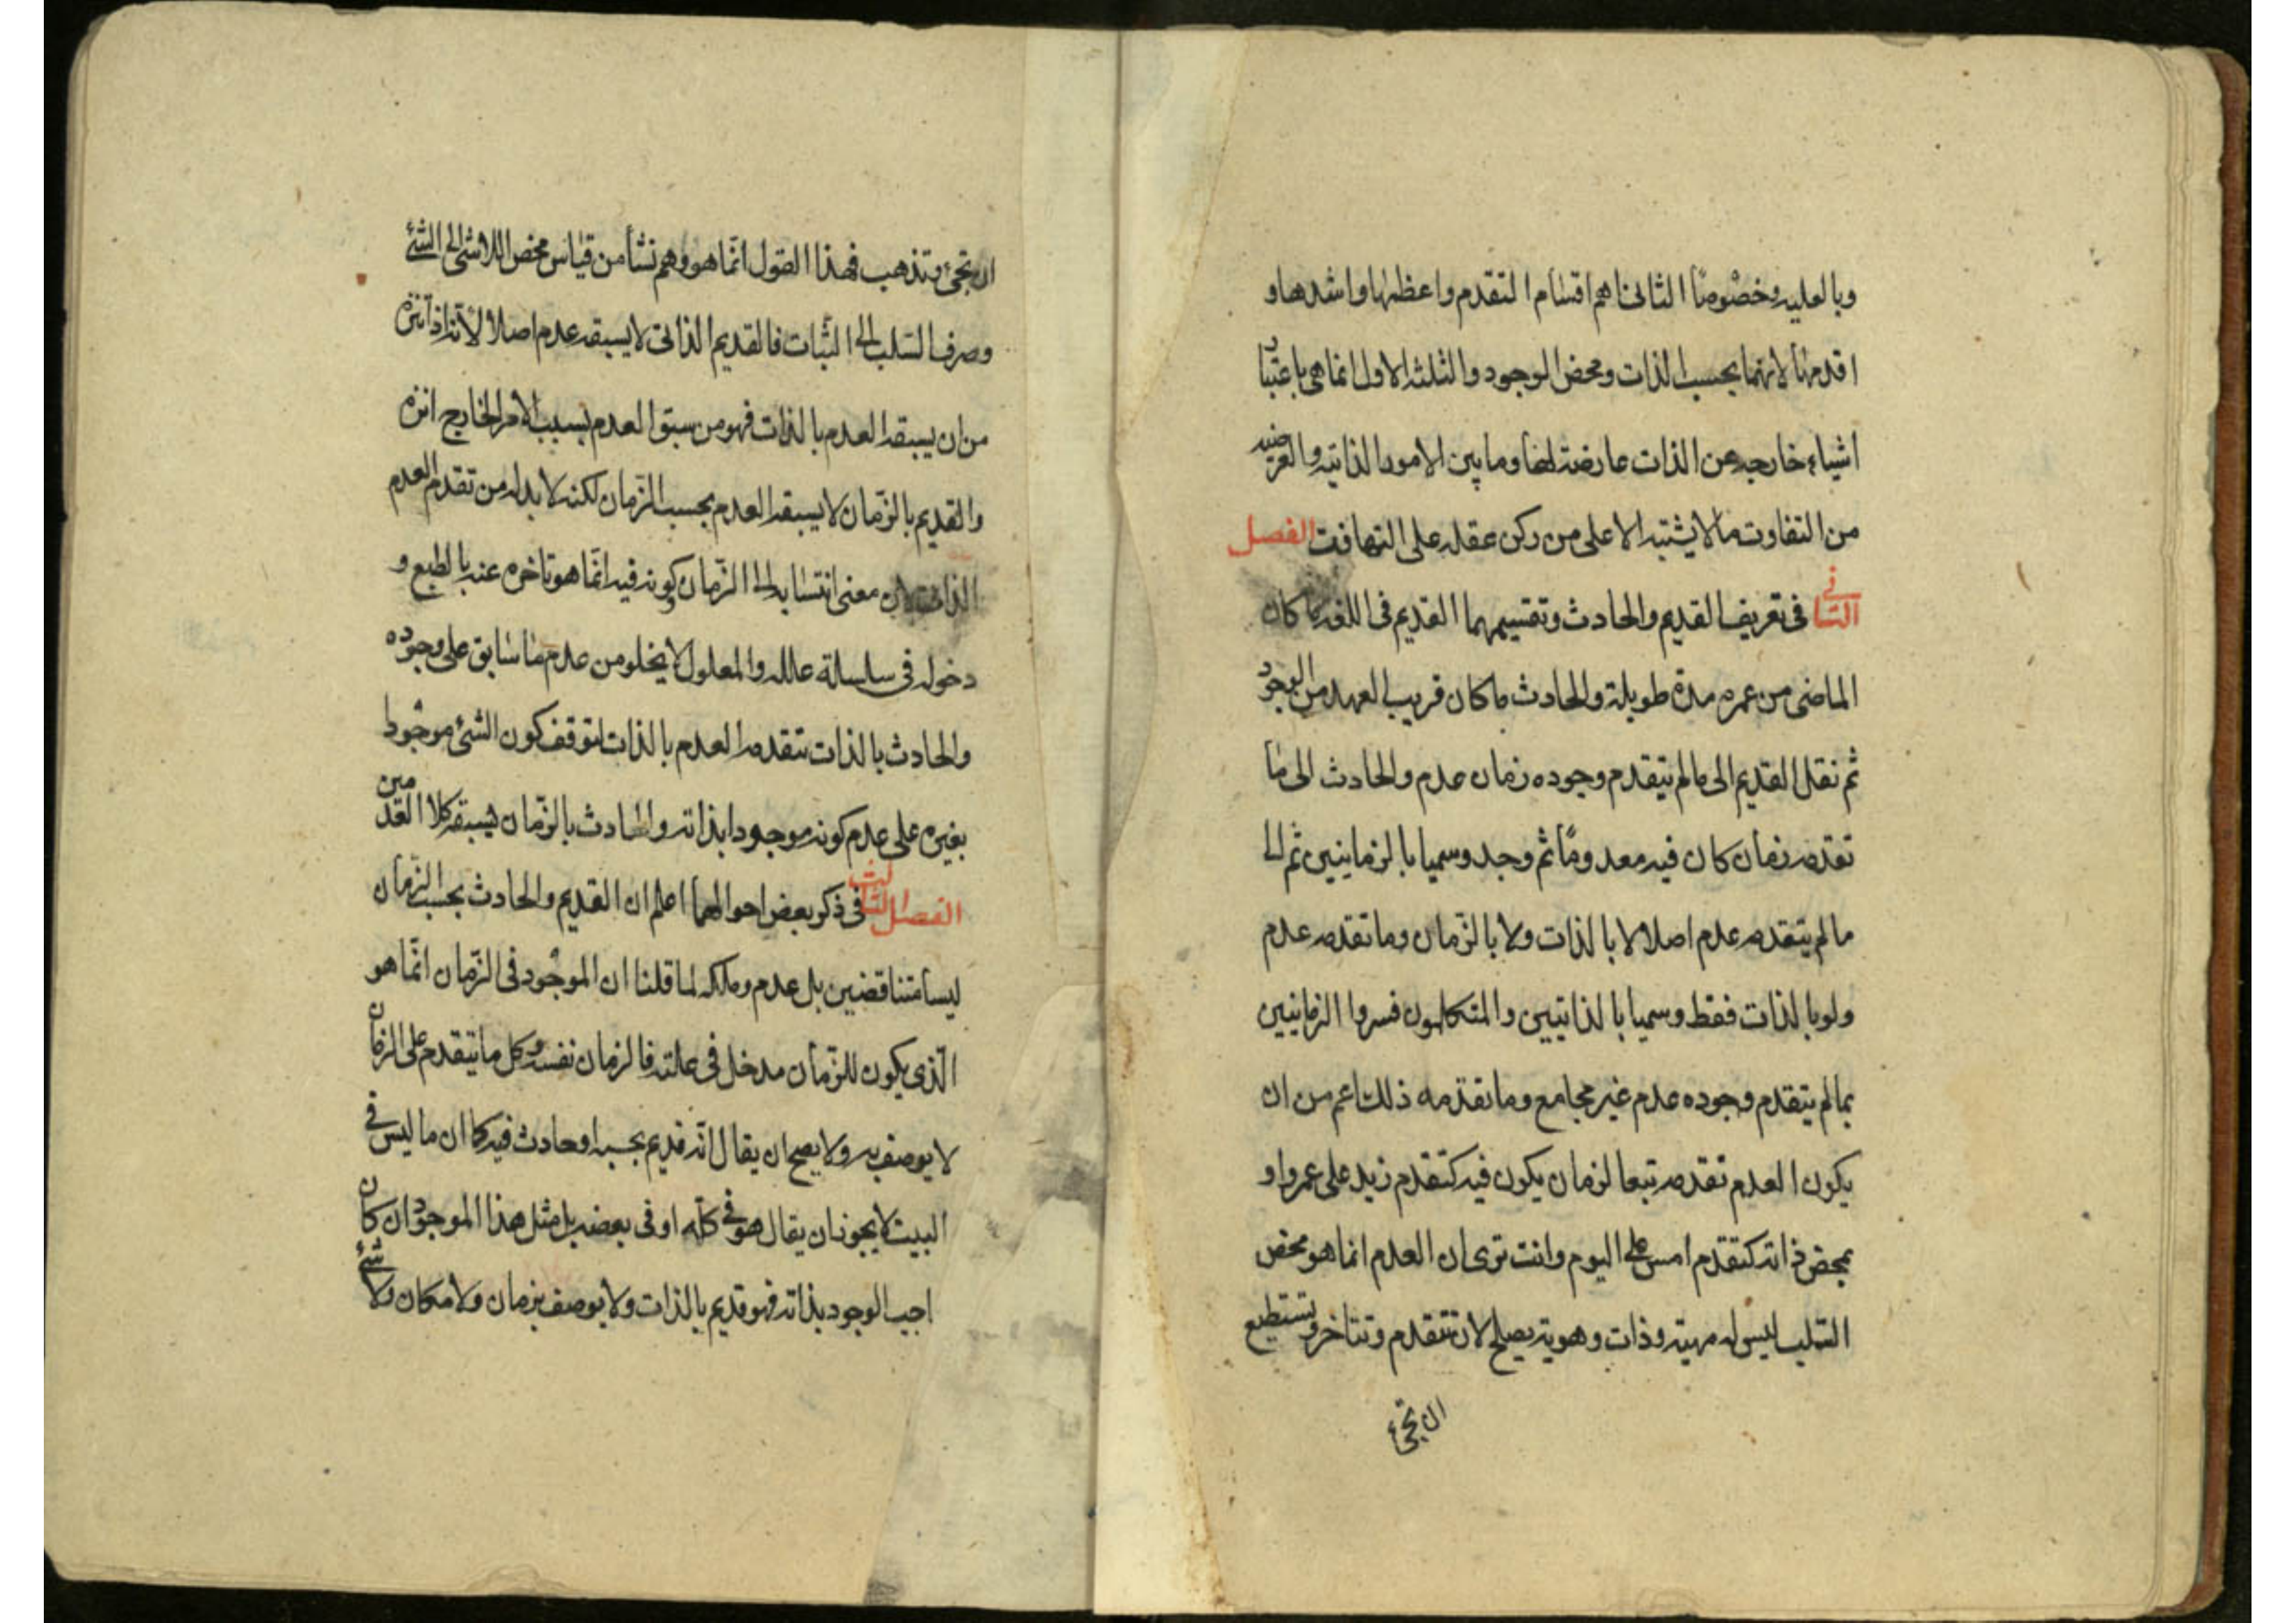 وبالعليه وخصوصًا الثانى هم اقسام التقدم واعظمها واشدها و
اقدمها لانهما بحسب الذات ومحض الوجود والثلثه الاول انما هى باعتبار
اشياء خارجه عن الذات عارضة لها وما بين الامور الذاتيه والعرضيه
من التفاوت مما لا يشتبه الا على من ركن عقله على التهافت الفصل
الثانى فى تعريف القديم والحادث وتقسيمهما القديم فى اللغه ما كان
الماضى من عمره مدة طويلة والحادث ما كان قريب العهد من الوجود
ثم نقل القديم الى ما لم يتقدم وجوده زمان عدم والحادث الى ما
تقدمه زمان كان فيه معدومًا ثم وجد وسميا بالزمانيين ثم الى
ما لم يتقدمه عدم اصلا لا بالذات ولا بالزّمان وما تقدمه عدم
ولو بالذات فقط وسميا بالذاتيين والمتكلمون فسروا الزمانيين
بما لم يتقدم وجوده عدم غير مجامع وما تقدمه ذلك اعم من ان
يكون العدم تقدمه تبعا لزمان يكون فيه كتقدم زيد على عمرو او
بمحض ذاته كتقدم امس على اليوم وانت ترى ان العدم انما هو محض
السّلب ليس له مهية وذات وهوية يصلح لان تتقدم وتتاخر وتستطيع
ان تجئ
ان تجئ وتذهب فهذا القول انّما هو وهم نشأ من قياس محض اللاشى الى الشئ
وصرف السّلب الى الثبات فالقديم الذاتى لا يسبقه عدم اصلا لأنّ ذاته انزه
من ان يسبقه العدم بالذات فهو من سبق العدم بسبب الامر الخارج انزه
والقديم بالزّمان لا يسبقه العدم بحسب الزّمان لكنه لا بد له من تقدم العدم
الذاتى لان معنى انتسابه الى الزّمان كونه فيه انّما هو تاخره عنه بالطبع و
دخوله فى سلسلة علله والمعلول لا يخلو من عدم ما سابق على وجوده
والحادث بالذات تتقدمه العدم بالذات لتوقف كون الشئ موجودا
بغيره على عدم كونه موجودا بذاته والحادث بالزّمان يسبقه كلا العدمين
الفصل الثالث فى ذكر بعض احوالهما اعلم ان القديم والحادث بحسب الزّمان
ليسا متناقضين بل عدم وملكه لما قلنا ان الموجود فى الزّمان انّما هو
الّذى يكون للزّمان مدخل فى علته فالزمان نفسه وكل ما يتقدم على الزمان
لا يوصف به ولا يصح ان يقال انّه قديم بحسبه او حادث فيه كما ان ما ليس فى
البيت لا يجوز ان يقال هو فى كلّه او فى بعضه بل مثل هذا الموجود ان كان
اجب الوجود بذاته فهو قديم بالذات ولا يوصف بزمان ولا مكان ولا شئ